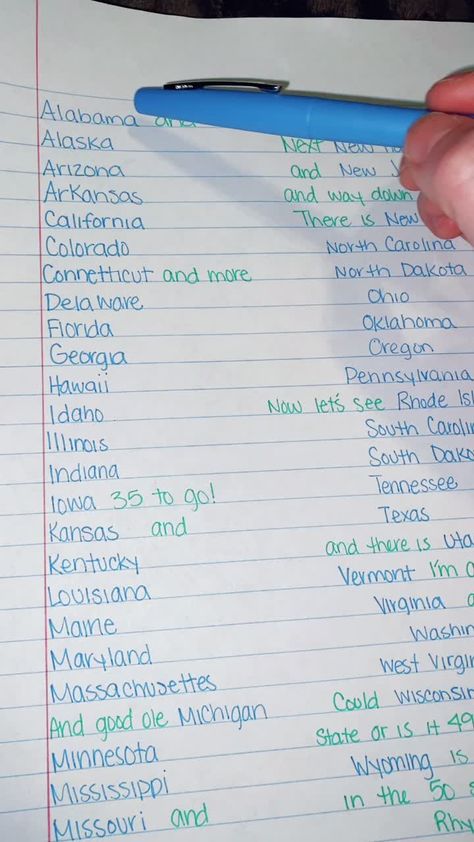 Alabama and
Alaska
Arizona
Arkansas
California
Colorado
Connetticut and more
Delaware
Florida
Georgia
Hawaii
Idaho
Illinois
Indiana
Iowa 35 to go!
Kansas and
Kentucky
Louisiana
Maine
Maryland
Massachusettes
And good ole Michigan
Minnesota
Mississippi
Missouri and
Next New
and New
and way down
There is New
North Carolina
North Dakota
Ohio
Oklahoma
Oregon
Pennsylvania
Now let's see Rhode
South
South
Tennessee
Texas
and there is
Vermont I'm
Virginia
West
Could Wisconsin
State or is it
Wyoming is
in the 50